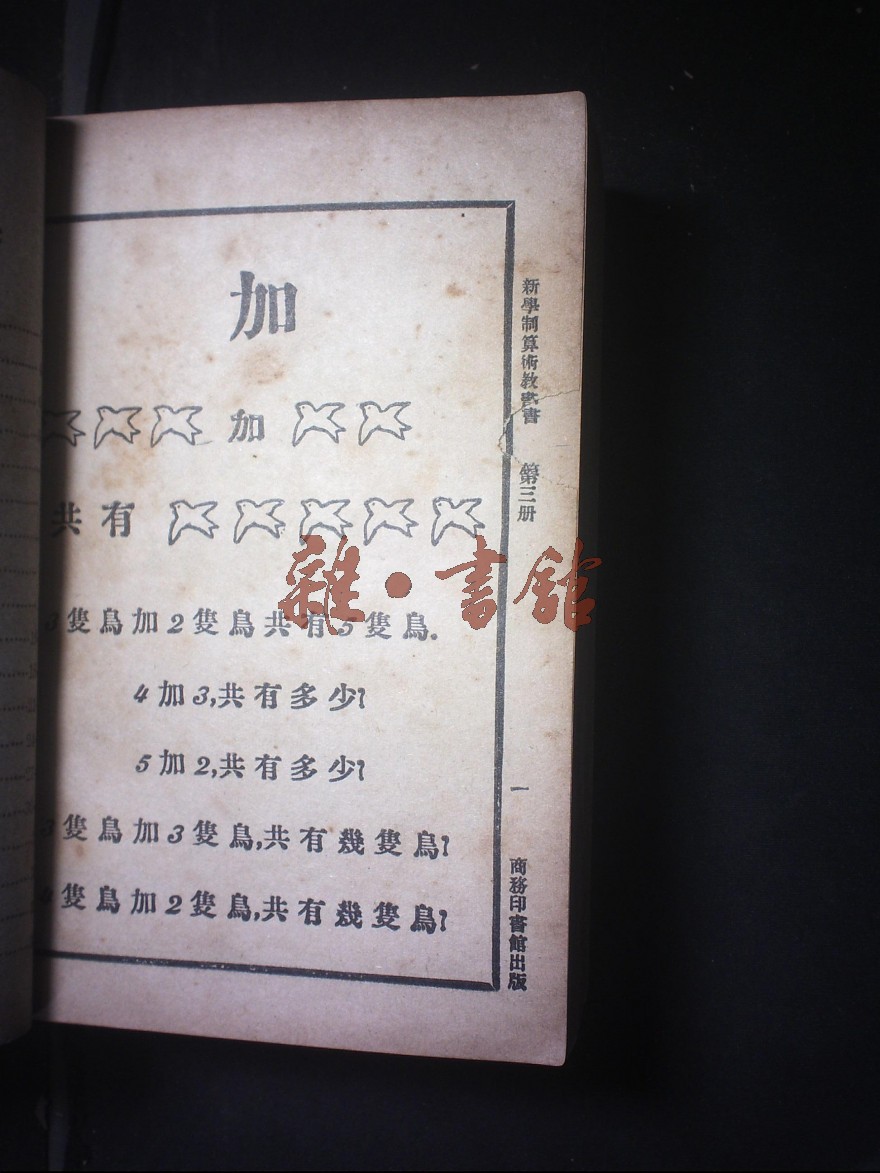 加
加
共有
3隻鳥加2隻鳥共有5隻鳥.
4加3,共有多少?
5加2,共有多少?
3隻鳥加3隻鳥,共有幾隻鳥?
4隻鳥加2隻鳥,共有幾隻鳥?
新學制算術教科書 第三册
一
商務印書館出版
雜·書館